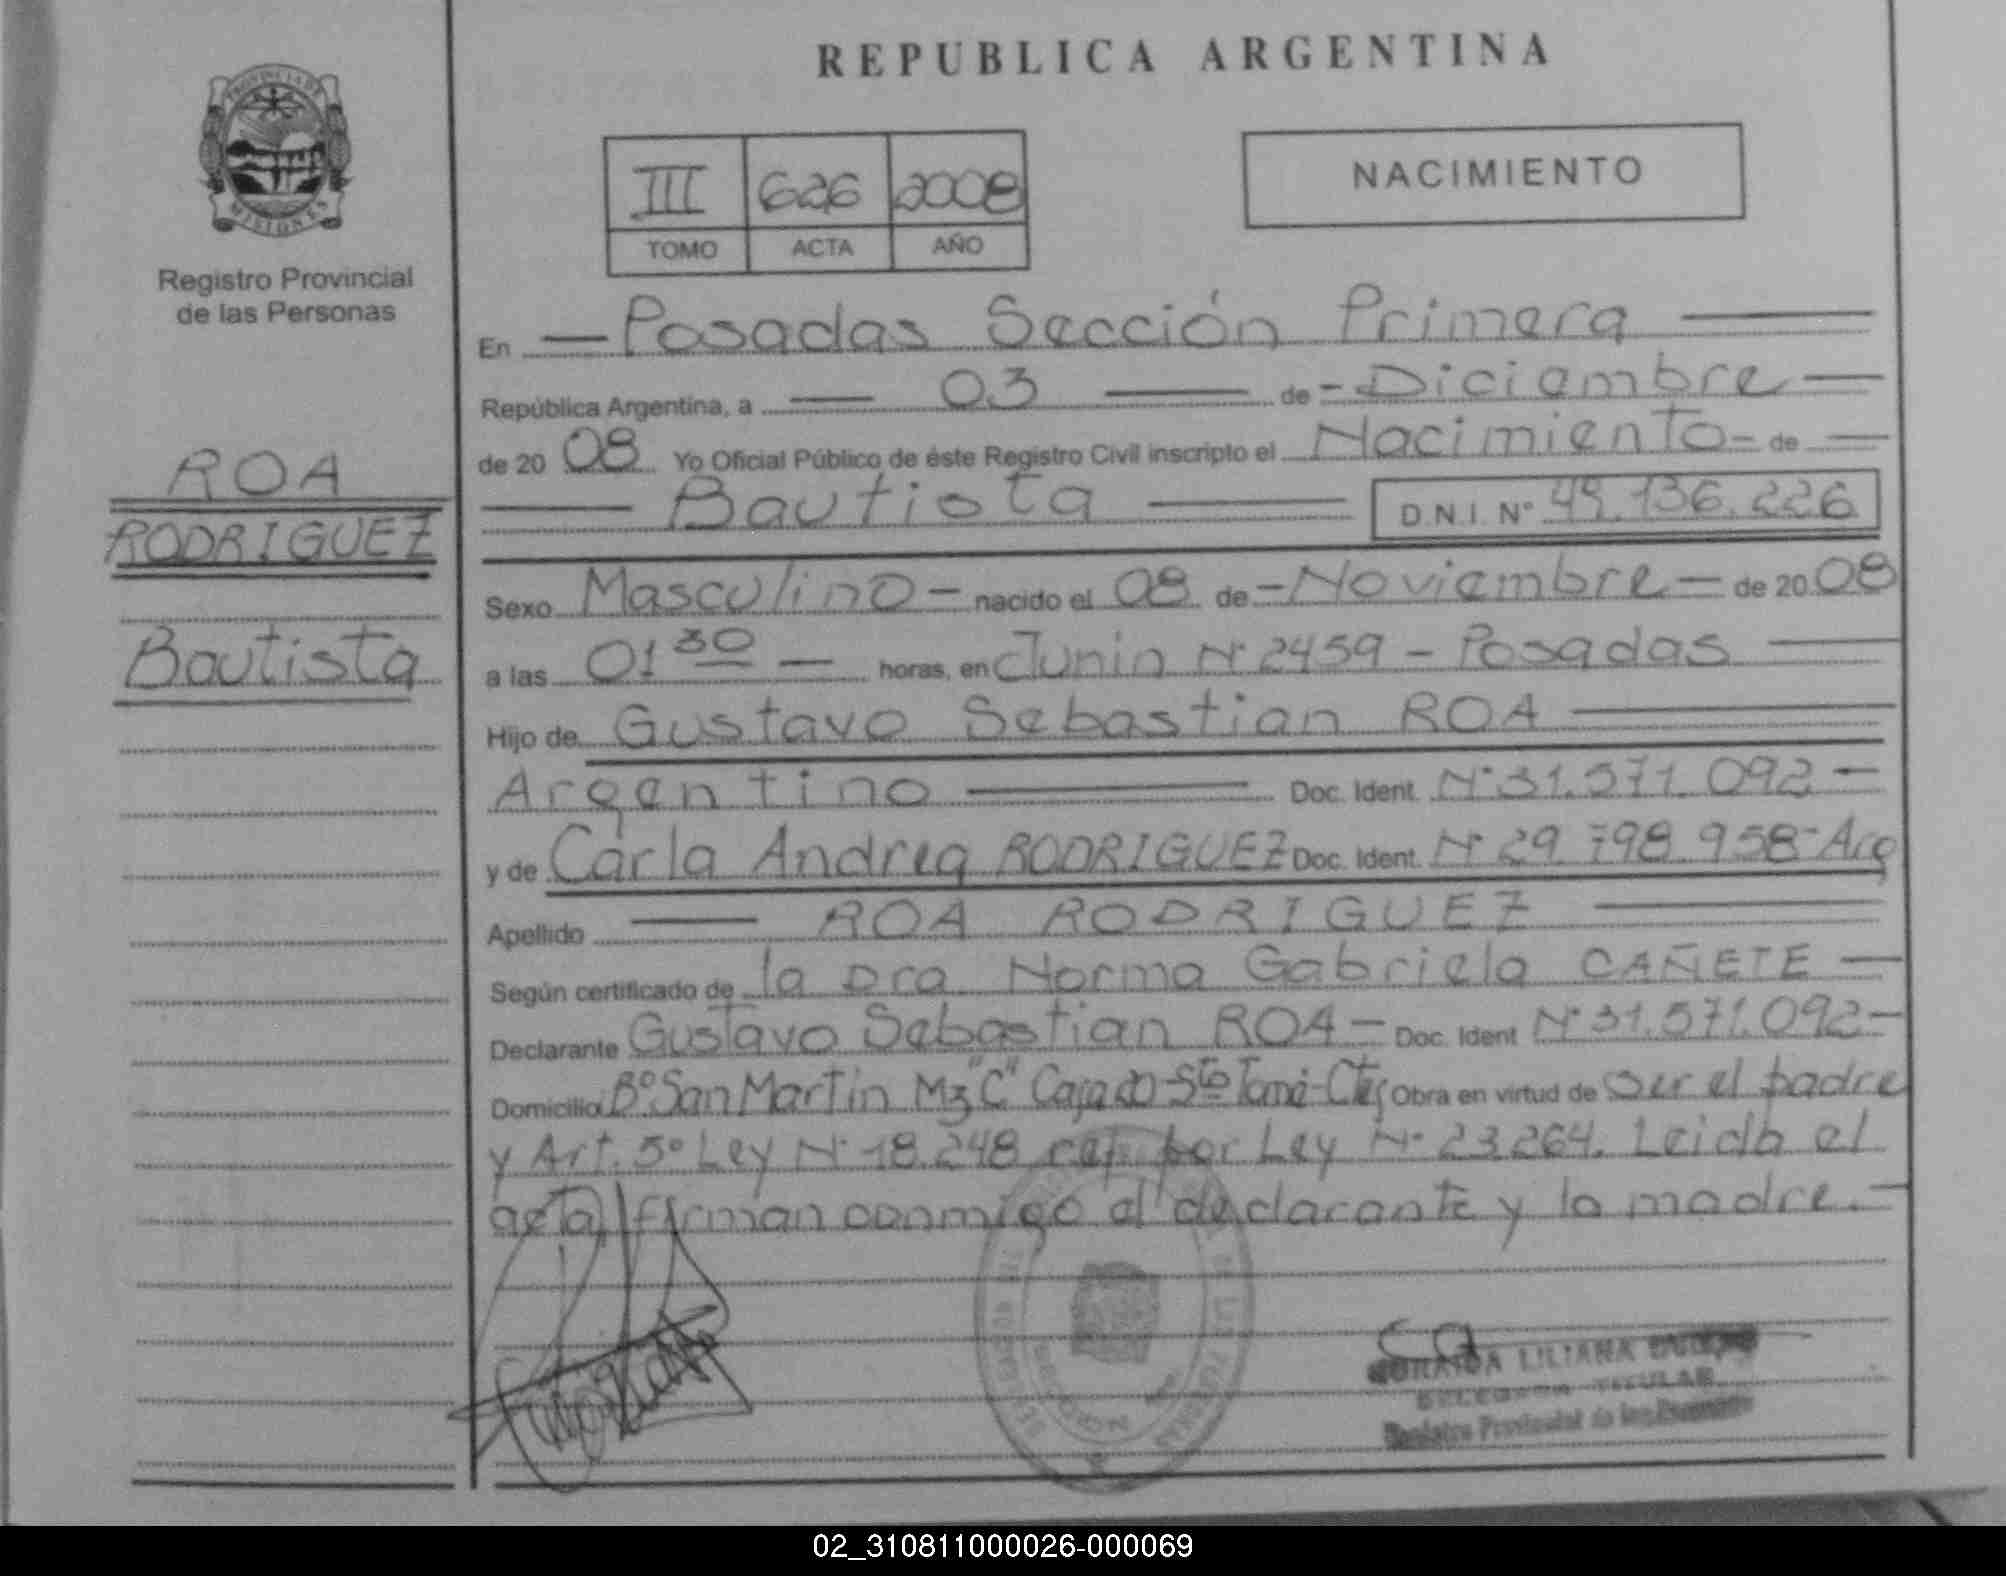 REPUBLICA ARGENTINA
PROVINCIA DE
MISIONES
Registro Provincial
de las Personas
III 626 2008
TOMO ACTA AÑO
NACIMIENTO
ROA
RODRIGUEZ
Bautista
En Posadas Sección Primera
República Argentina, a 03 de Diciembre
de 2008 Yo Oficial Público de éste Registro Civil inscripto el Nacimiento de
Bautista D.N.I. Nº 49.136.226
Sexo Masculino nacido el 08 de Noviembre de 2008
a las 01 30 horas, en Junin Nº 2459 - Posadas
Hijo de Gustavo Sebastian ROA
Argentino Doc. Ident. Nº 31.571.092
y de Carla Andrea RODRIGUEZ Doc. Ident. Nº 29.798.958 - Arg
Apellido ROA RODRIGUEZ
Según certificado de la Dra Norma Gabriela CAÑETE
Declarante Gustavo Sebastian ROA Doc. Ident Nº 31.571.092
Domicilio Bº San Martin Mz "C" Casa Sto Tomé - Ctes Obra en virtud de ser el padre
y Art. 5º Ley Nº 18.248 por Ley Nº 23.264. Leida el
acta firman conmigo el declarante y la madre.
LILIANA
DELEGADA TITULAR
Registro Provincial de las Personas
02_310811000026-000069